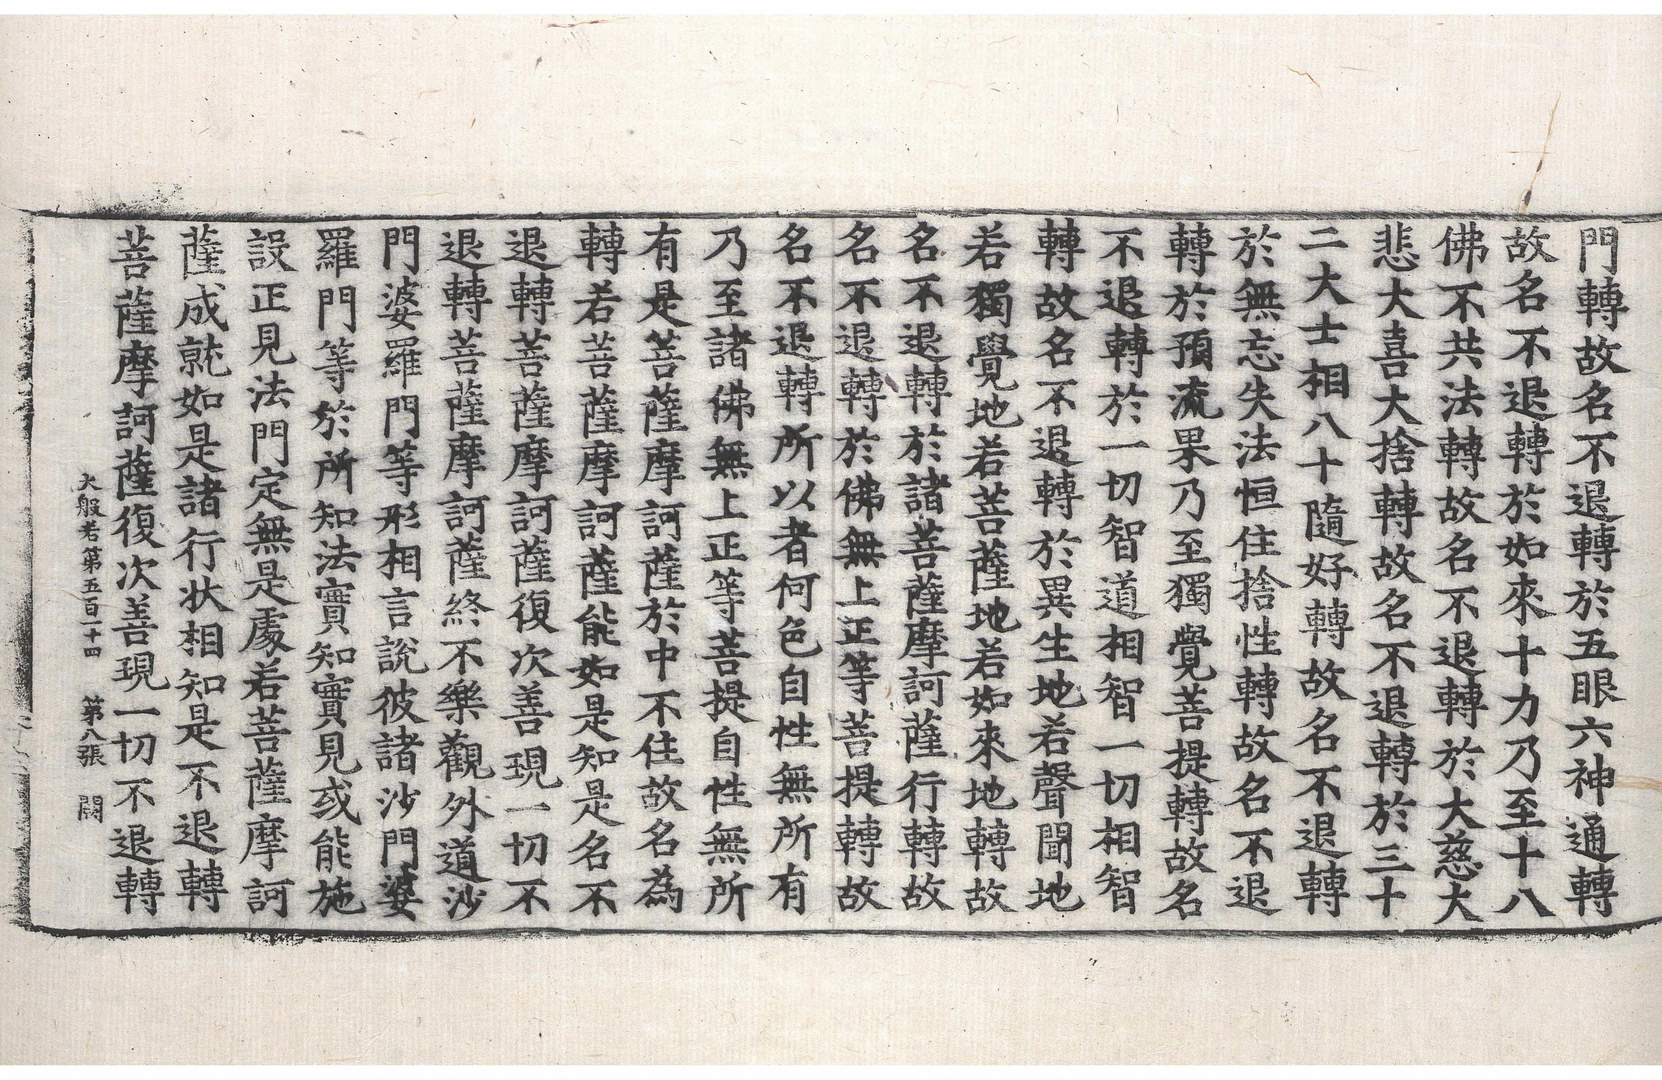 門轉故名不退轉於五眼六神通轉
故名不退轉於如來十力乃至十八
佛不共法轉故名不退轉於大慈大
悲大喜大捨轉故名不退轉於三十
二大士相八十隨好轉故名不退轉
於無忘失法恒住捨性轉故名不退
轉於預流果乃至獨覺菩提轉故名
不退轉於一切智道相智一切相智
轉故名不退轉於異生地若聲聞地
若獨覺地若菩薩地若如來地轉故
名不退轉於諸菩薩摩訶薩行轉故
名不退轉於佛無上正等菩提轉故
名不退轉所以者何色自性無所有
乃至諸佛無上正等菩提自性無所
有是菩薩摩訶薩於中不住故名為
轉若菩薩摩訶薩能如是知是名不
退轉菩薩摩訶薩復次善現一切不
退轉菩薩摩訶薩終不樂觀外道沙
門婆羅門等形相言說彼諸沙門婆
羅門等於所知法實知實見或能施
設正見法門定無是處若菩薩摩訶
薩成就如是諸行狀相知是不退轉
菩薩摩訶薩復次善現一切不退轉
大般若第五百一十四 第八張 闕